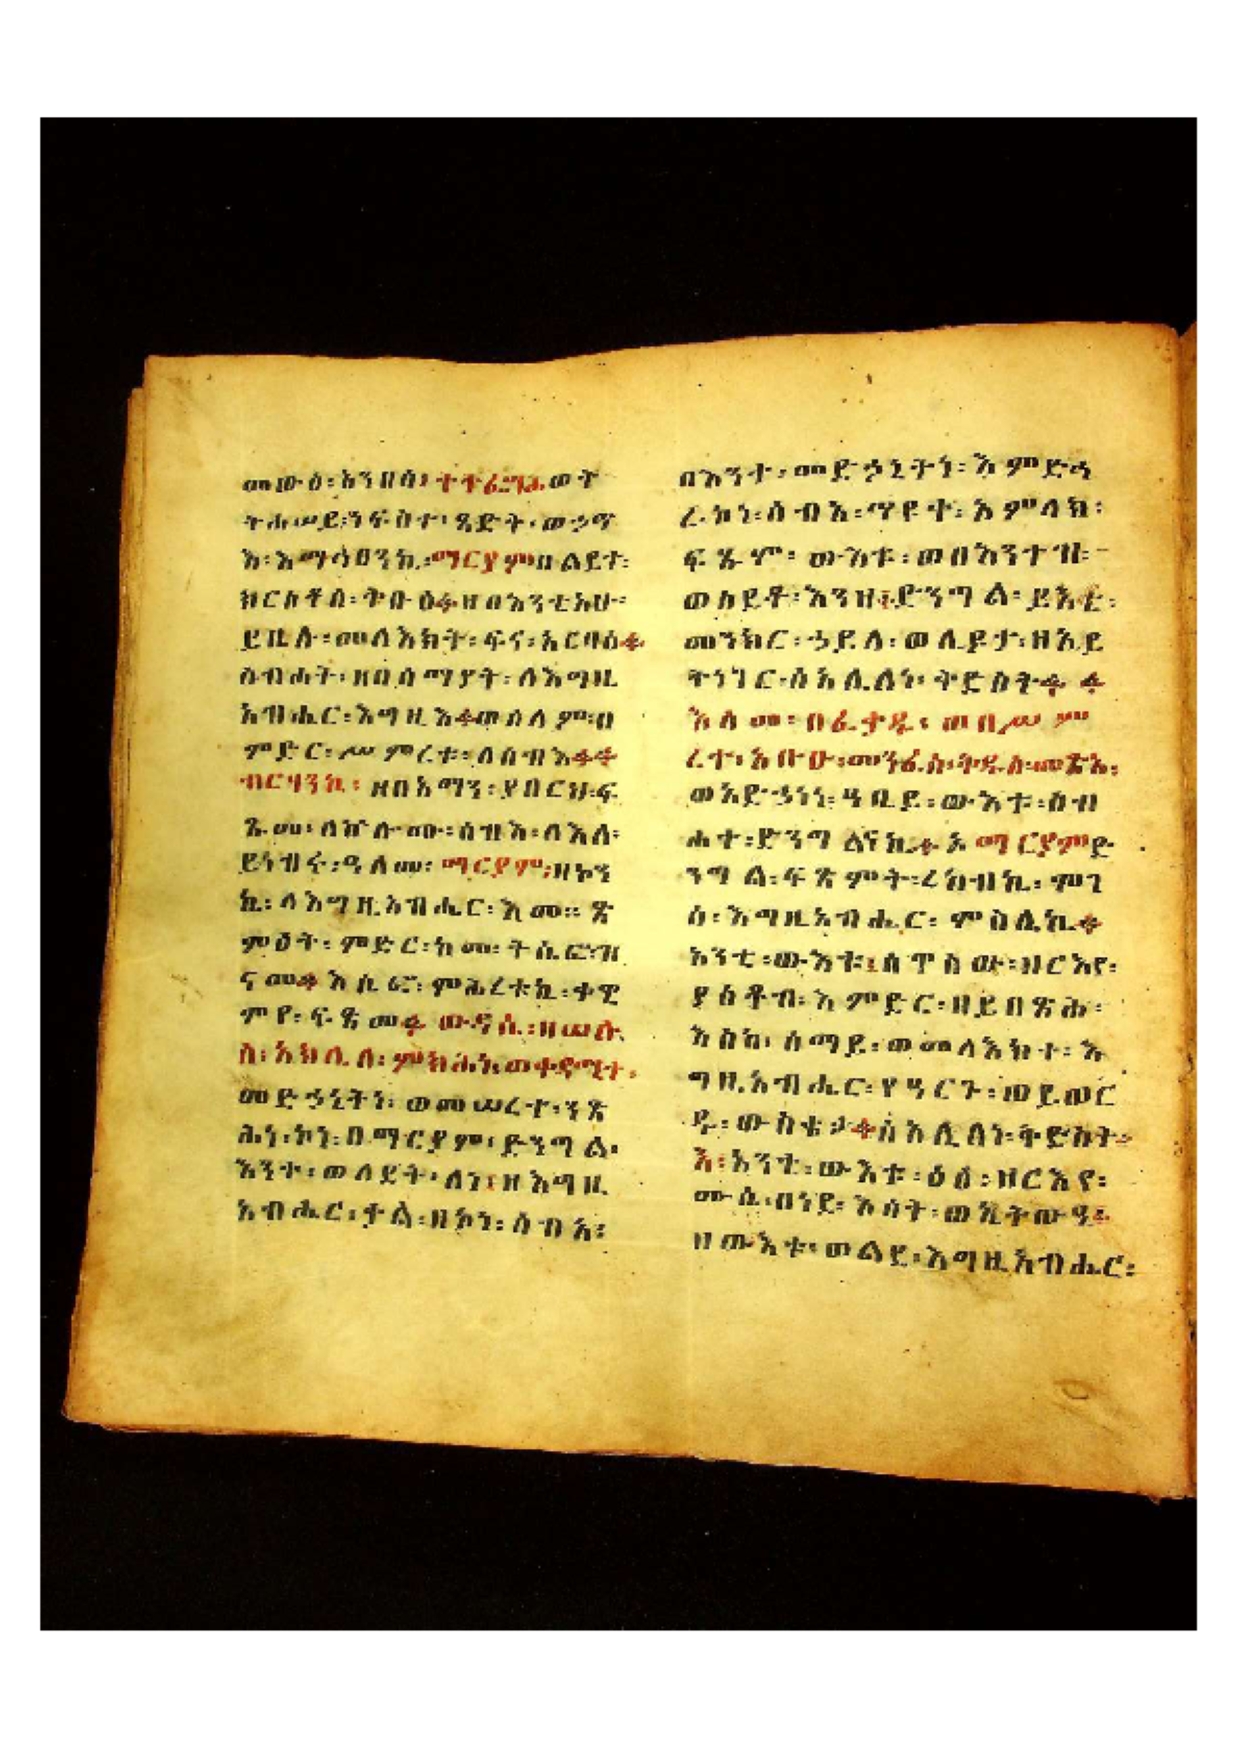 መውዕ፡ አንዘሰ፡ ተትፌሣሒ ወት
ትሐሠይ፡ ነፍስየ፡ ጊድት፡ ወኃሣ
እ፡ እማኅፀንኪ፡ ማርያም፡ በልደተ፡
ክርስቶስ፡ ትቡዕ ዘበእንቲአሁ፡
ይቤሉ፡ መላእክት፡ ፍና፡ አርባዕ
ስብሐት፡ ዘበሰማያት፡ ለእግዚ
አብሔር፡ እግዚእ ወሰላም፡ በ
ምድር፡ ሥምረቱ፡ ለሰብእ
ብርሃንኪ፡ ዘበአማን፡ ያበርህ፡ ፍ
ጹመ፡ ለኵሉሙ፡ ሰዝእ፡ ለእለ፡
ይነብሩ፡ ዓለመ፡ ማርያም፡ ዘኮን
ኪ፡ ለእግዚአብሔር፡ እመ። ጽ
ምዕት፡ ምድር፡ ከመ፡ ትሴፎ፡ ዝ
ናመ እሴፎ፡ ምሕረተኪ፡ ቀዊ
ምየ፡ ፍጽመ ውዳሴ፡ ዘሠሉ
ስ፡ አክሊለ፡ ምክሕነ ወቀዳሚተ፡
መድኃኒትነ፡ ወመሠረተ፡ ንጽ
ሕነ፡ ኮነ፡ በማርያም፡ ድንግል፡
እንተ፡ ወለደት፡ ለነ፡ ዘእግዚ
አብሔር፡ ቃል፡ ዘኮነ፡ ሰብአ፡
በእንተ፡ መድኃኒትነ፡ እምድኅ
ረ፡ ኮነ፡ ሰብአ፡ ጥዩተ፡ አምላክ፡
ፍጹም፡ ውእቱ፡ ወበእንተዝ፡
ወለደቶ፡ እንዘ፡ ድንግል፡ ይእቲ፡
መንክር፡ ኃይለ፡ ወሊዶታ፡ ዘኢይ
ትነገር፡ ሰአሊ ለነ፡ ቅድስት
እስመ፡ በፈቃዱ፡ ወበሥም
ረተ፡ አቡሁ፡ መንፈስ፡ ቅዱስ፡ መጽአ፡
ወአድኃነነ፡ ዓቢይ፡ ውእቱ፡ ስብ
ሐተ፡ ድንግልናኪ ኦ ማርያም ድ
ንግል፡ ፍጽምት፡ ረከብኪ፡ ሞገ
ሰ፡ እግዚአብሔር፡ ምስሌኪ
አንቲ፡ ውእቱ፡ ሰዋስው፡ ዘርእየ፡
ያዕቆብ፡ እምድር፡ ዘይበጽሕ፡
እስከ፡ ሰማይ፡ ወመላእክተ፡ እ
ግዚአብሔር፡ የዓርጉ፡ ወይወር
ዱ፡ ውስቴታ ሰአሊ ለነ፡ ቅድስት
እ፡ አንቲ፡ ውእቱ፡ ዕፅ፡ ዘርእየ፡
ሙሴ፡ በነደ፡ እሳት፡ ወኢትውዒ
ዘውእቱ፡ ወልደ፡ እግዚአብሔር፡